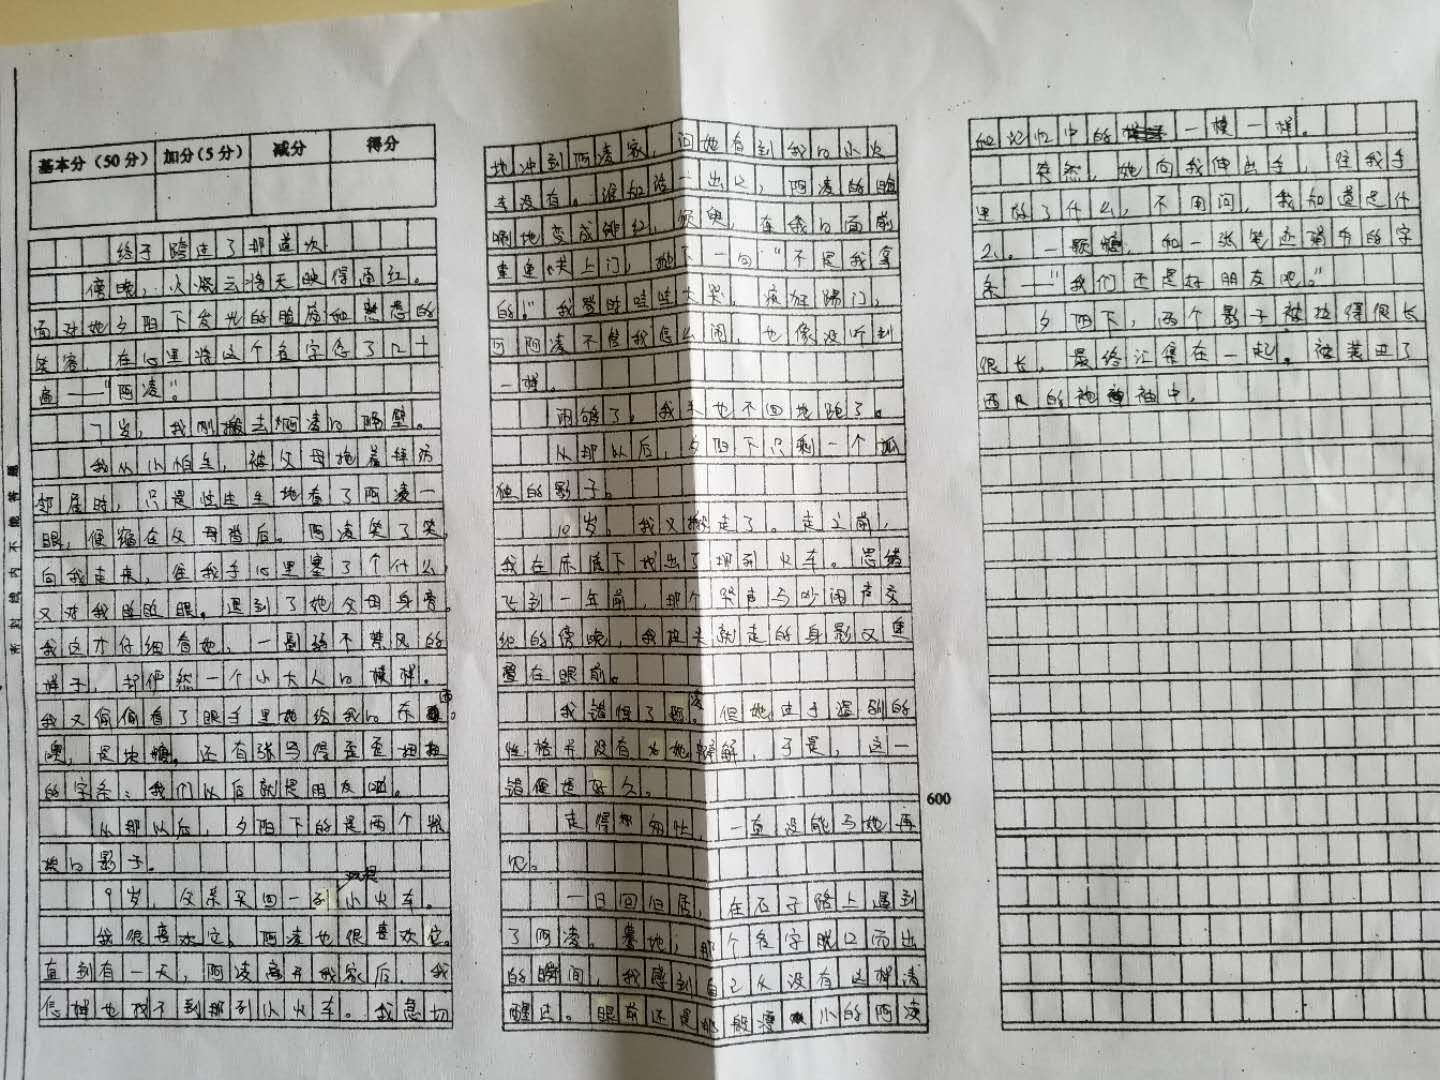 基本分（50分） 加分（5分） 减分 得分
终于跨过了那道坎
傍晚，火烧云将天映得通红。
面对她夕阳下发光的脸庞和熟悉的
笑容，在心里将这个名字念了几十
遍——“阿凌。”
7岁，我刚搬去阿凌的隔壁。
我从小怕生，被父母拖着拜访
邻居时，只是怯生生地看了阿凌一
眼，便缩在父母背后。阿凌笑了笑，
向我走来，往我手心里塞了个什么，
又对我眨眨眼。退到了她父母身旁。
我这才仔细看她，一副弱不禁风的
样子，却俨然一个小大人的模样。
我又偷偷看了眼手里她给我的东西。
噢，是块糖。还有张写得歪歪扭扭
的字条：我们以后就是朋友啦。
从那以后，夕阳下的是两个
的影子。
9岁，父亲买回一列玩具小火车。
我很喜欢它，阿凌也很喜欢它。
直到有一天，阿凌离开我家后，我
怎样也找不到那列小火车。我急切
地冲到阿凌家，问她看到我的小火
车没有。谁知话一出口，阿凌的脸
唰地变成绯红，在我的面前
重重关上门，抛下一句“不是我拿
的！”我登时哇哇大哭，疯狂踢门，
可阿凌不管我怎么闹，也像没听到
一样。
闹够了，我头也不回地跑了。
从那以后，夕阳下只剩一个孤
独的影子。
10岁。我又搬走了。走之前，
我在床底下找出了那列火车。思绪
飞到一年前，那个哭声与吵闹声交
织的傍晚，我扭头就走的身影又重
叠在眼前。
我错怪了阿凌。但她过于温和的
性格并没有为她辩解，于是，这一
错便是好久。
走得匆忙，一直没能与她再
见。
一日回旧居，在石子路上遇到
了阿凌。蓦地，那个名字脱口而出
的瞬间，我感到自己从没有这样清
醒过。眼前还是那般瘦小的阿凌
和记忆中的一模一样。
突然，她向我伸出手，往我手
里放了什么，不用问，我知道是什
么。一颗糖，和一张笔迹娟秀的字
条——“我们还是好朋友吧。”
夕阳下，两个影子被拉得很长
很长，最终汇集在一起。被装进了
西风的袖中。
600
密封线内不能答题